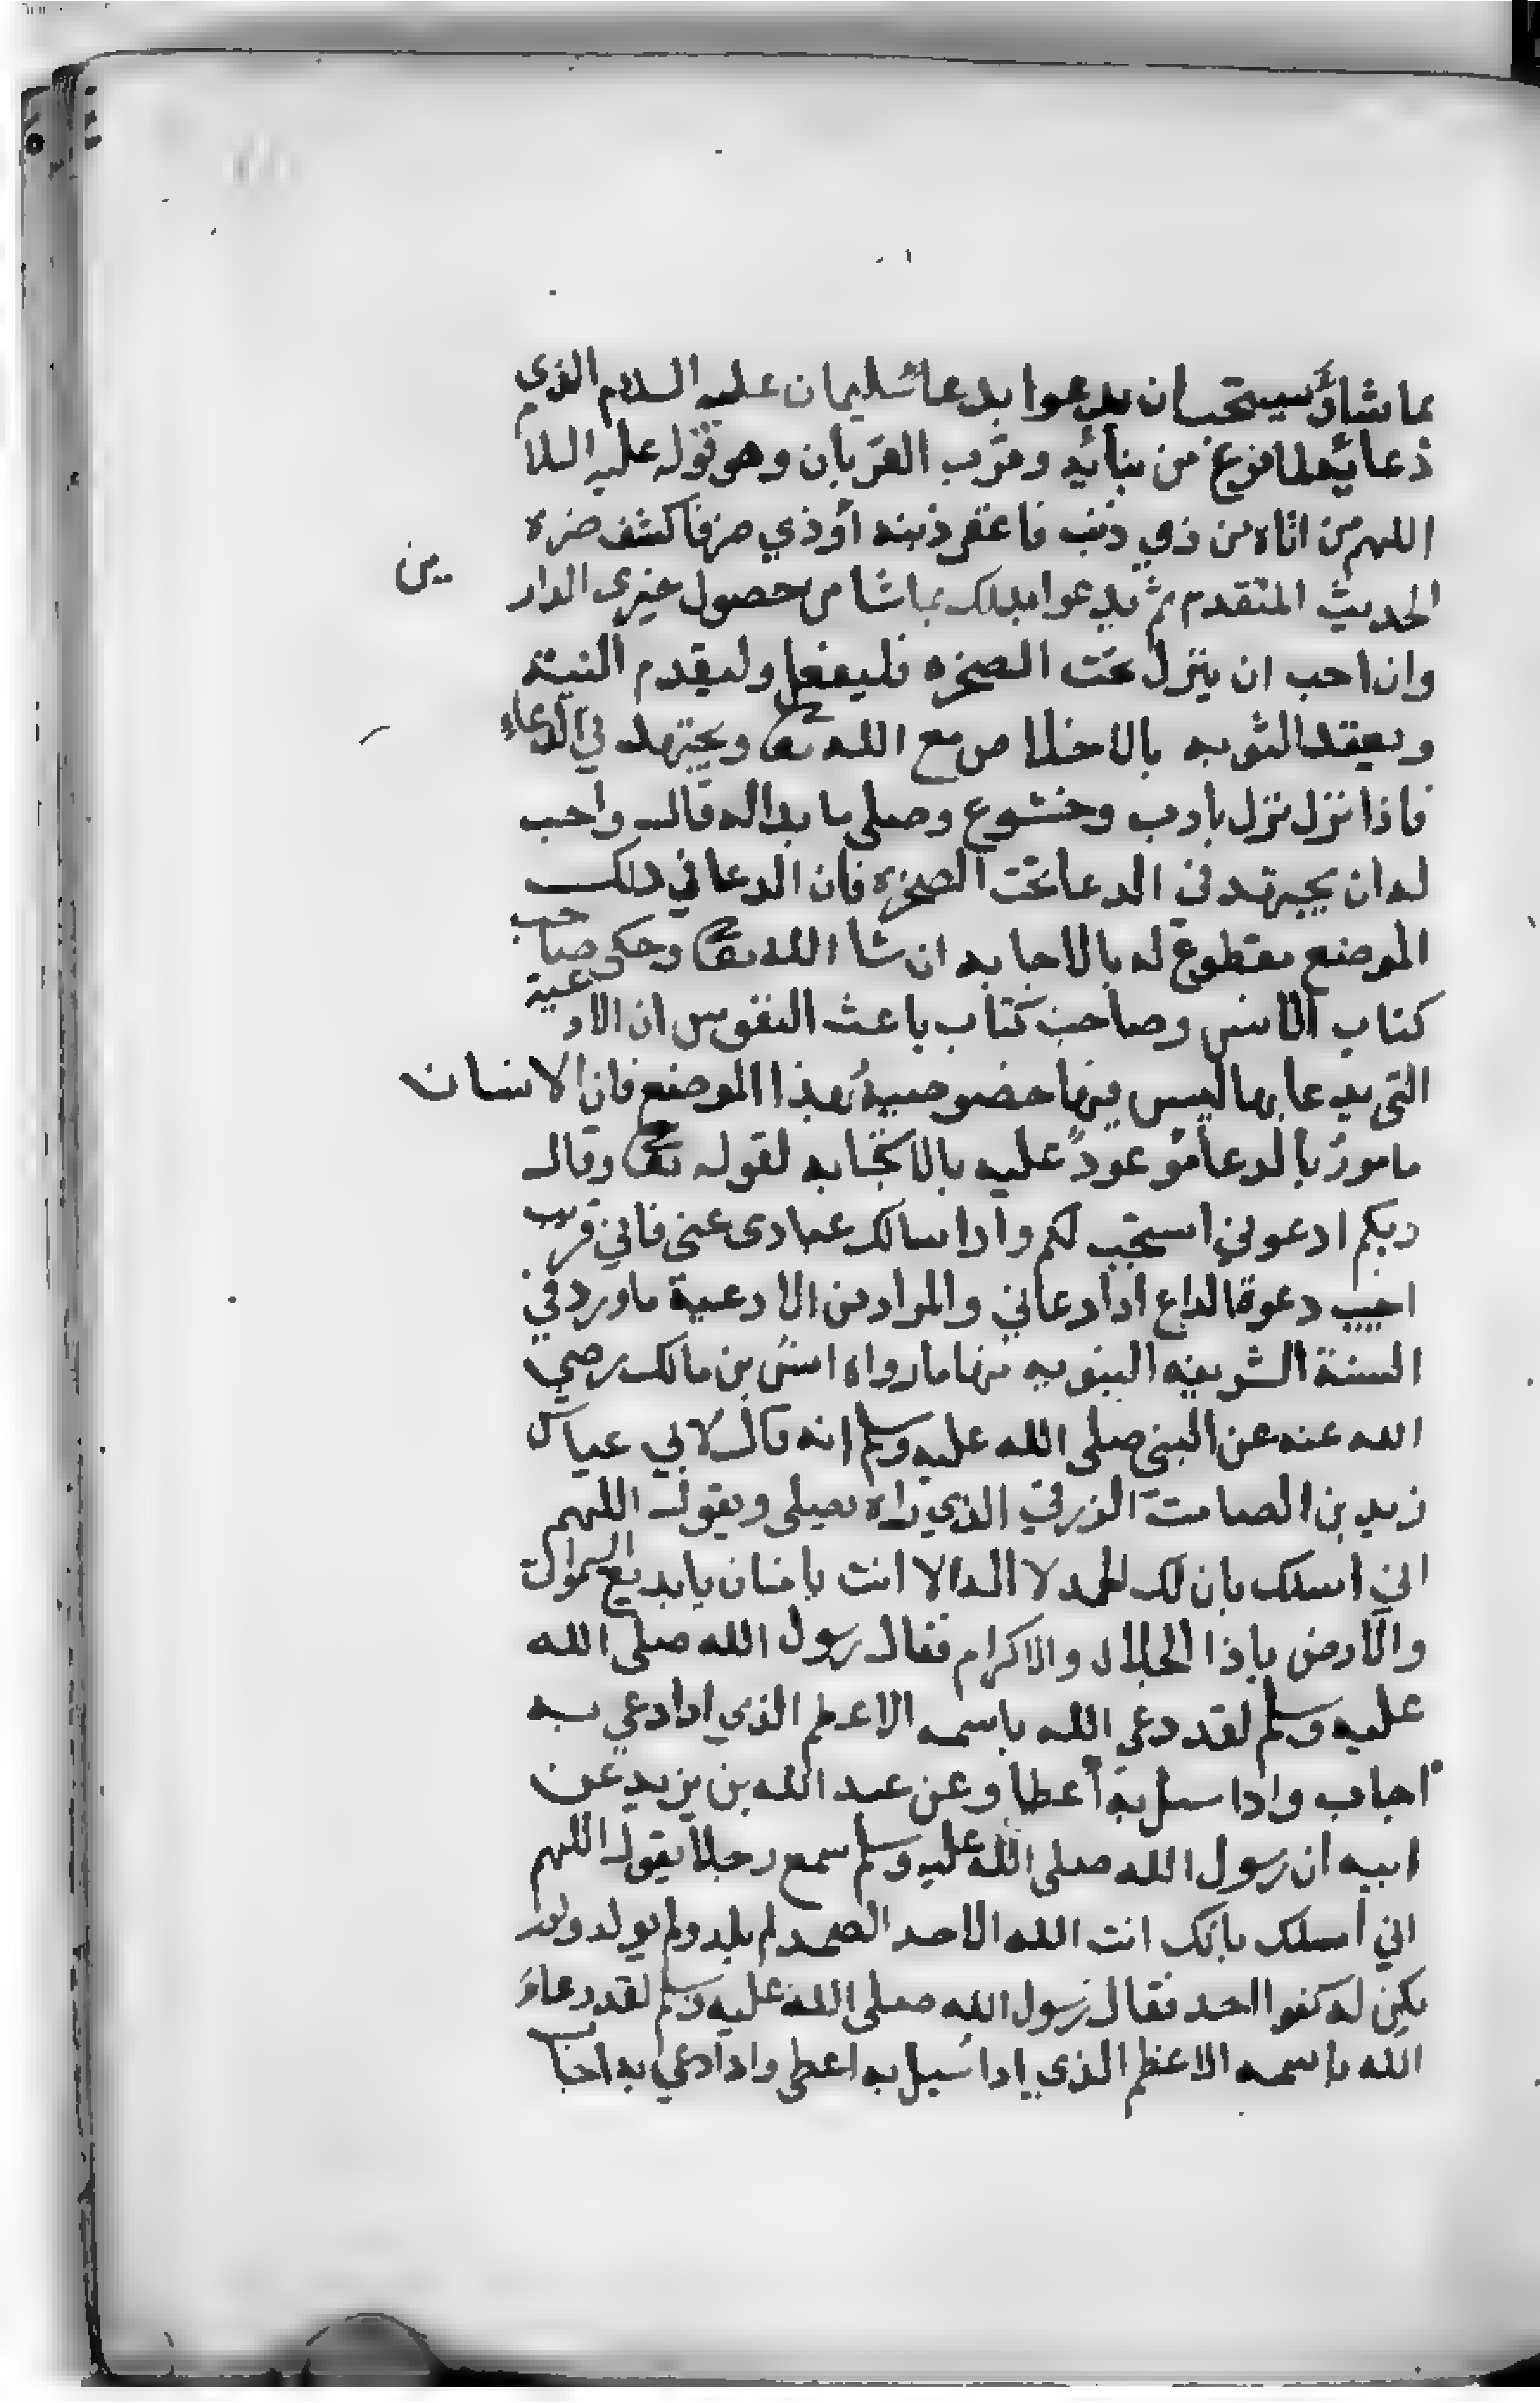 بما شاؤيستحب ان يدعوا بدعا سليمان عليه السلام الذي
دعا به لما فرغ من بنائه وقرب القربان وهو قوله عليه السلا
اللهم من اتاه من ذي ذنب فاغفر ذنبه أو ذي ضر فاكشف ضره
الحديث المتقدم ثم يدعوا بذلك بما شا من حصول خيرى الدار
ين
وان احب ان ينزل تحت الصخره فليفعل وليقدم النية
ويعتقد التوبه بالاخلاص مع الله تعا ويجتهد في الدعاء
فاذا نزل نزل بادب وخشوع وصلى ما بداله قال واحب
له ان يجتهد في الدعا تحت الصخره فان الدعا في ذلك
الموضع مقطوع له بالاجابه ان شا الله تعا وحكى صاحب
كتاب الانس وصاحب كتاب باعث النفوس ان الادعية
التي يدعا بها ليس فيها خصوصية بهذا الموضع فان الانسان
مامور بالدعا موعود عليه بالاجابه لقوله تعا وقال
ربكم ادعوني استجب لكم واذا سالك عبادى عنى فاني قريب
اجيب دعوة الداع اذا دعاني والمراد من الادعية ما ورد في
السنة الشريفه النبويه منها ما رواه انس بن مالك رضي
الله عنه عن النبي صلى الله عليه وسلم انه قال لابي عياش
زيد بن الصامت الزرقي الذي راه يصلى ويقول اللهم
اني اسلك بان لك الحمد لا اله الا انت يا منان يا بديع السموات
والارض ياذا الجلال والاكرام فقال رسول الله صلى الله
عليه وسلم لقد دعي الله باسمه الاعظم الذي اذا دعي به
اجاب واذا سئل به أعطا وعن عبد الله بن يزيد عن
ابيه ان رسول الله صلى الله عليه وسلم سمع رجلا يقول اللهم
اني أسلك بانك انت الله الاحد الصمد لم يلد ولم يولد ولم
يكن له كفوا احد فقال رسول الله صلى الله عليه وسلم لقد دعاء
الله باسمه الاعظم الذي اذا سيل به اعطى واذا دعي به اجاب